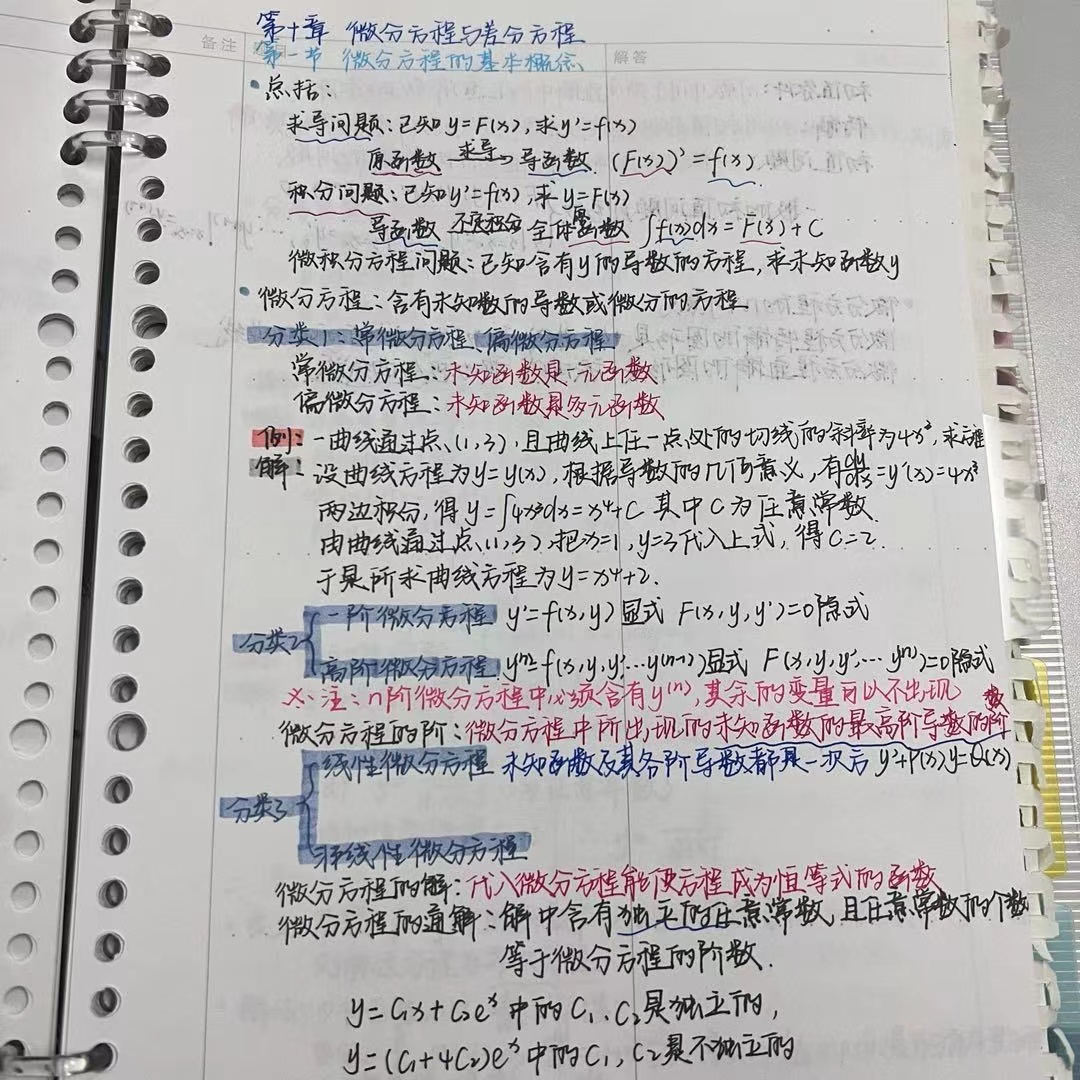 第十章 微分方程与差分方程
备注
解答
第一节 微分方程的基本概念
• 总括：
求导问题：已知y=F(x)，求y'=f(x)
原函数 求导→ 导函数 (F(x))'=f(x)
积分问题：已知y'=f(x)，求y=F(x)
导函数 不定积分→ 全体原函数 ∫f(x)dx=F(x)+C
微积分方程问题：已知含有y的导数的方程，求未知函数y
• 微分方程：含有未知数的导数或微分的方程
分类1：常微分方程、偏微分方程
常微分方程：未知函数是一元函数
偏微分方程：未知函数是多元函数
例：一曲线通过点(1,3)，且曲线上任一点处的切线的斜率为4x³，求方程
解：设曲线方程为y=y(x)，根据导数的几何意义，有dy/dx=y'(x)=4x³
两边积分，得y=∫4x³dx=x⁴+C 其中C为任意常数
由曲线通过点(1,3)，把x=1，y=3代入上式，得C=2.
于是所求曲线方程为y=x⁴+2.
分类2
一阶微分方程 y'=f(x,y)显式 F(x,y,y')=0隐式
高阶微分方程 y⁽ⁿ⁾=f(x,y,y'…y⁽ⁿ⁻¹⁾)显式 F(x,y,y',…y⁽ⁿ⁾)=0隐式
※注：n阶微分方程中必须含有y⁽ⁿ⁾，其余的变量可以不出现
微分方程的阶：微分方程中所出现的未知函数的最高阶导数的阶数
分类3
线性微分方程 未知函数及其各阶导数都是一次方 y'+P(x)y=Q(x)
非线性微分方程
微分方程的解：代入微分方程能使方程成为恒等式的函数
微分方程的通解：解中含有独立的任意常数，且任意常数的个数
等于微分方程的阶数.
y=C₁x+C₂eˣ中的C₁、C₂是独立的，
y=(C₁+4C₂)eˣ中的C₁，C₂是不独立的